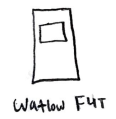 Watlow F4T